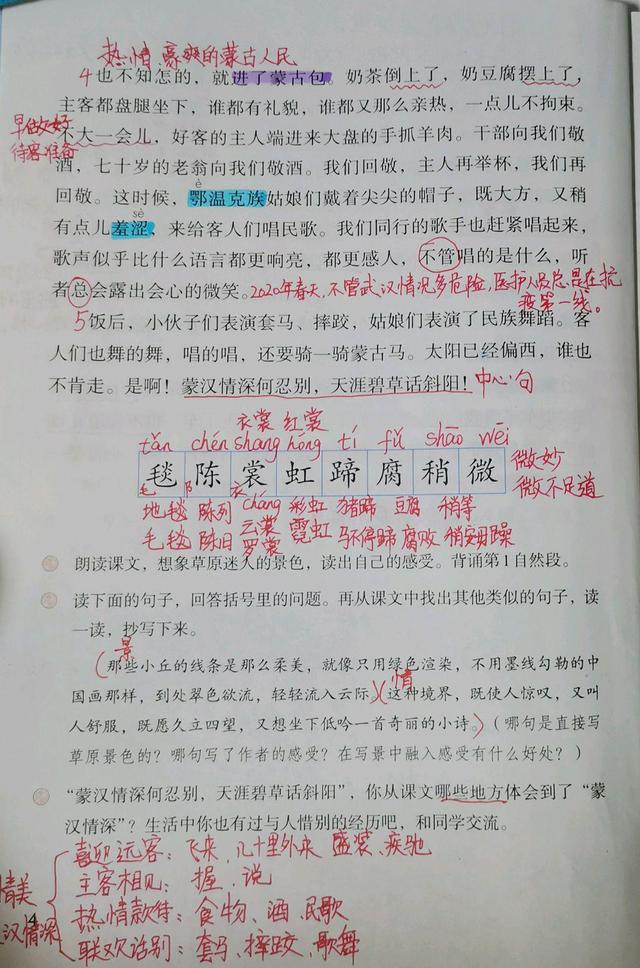 热情、豪爽的蒙古人民
4也不知怎的，就进了蒙古包。奶茶倒上了，奶豆腐摆上了，
主客都盘腿坐下，谁都有礼貌，谁都又那么亲热，一点儿不拘束。
早做好
待客准备
不大一会儿，好客的主人端进来大盘的手抓羊肉。干部向我们敬
酒，七十岁的老翁向我们敬酒。我们回敬，主人再举杯，我们再
è
回敬。这时候，鄂温克族姑娘们戴着尖尖的帽子，既大方，又稍
sè
有点儿羞涩，来给客人们唱民歌。我们同行的歌手也赶紧唱起来，
歌声似乎比什么语言都更响亮，都更感人，不管唱的是什么，听
者总会露出会心的微笑。2020年春天，不管武汉情况多危险，医护人员总是在抗
疫第一线。
5饭后，小伙子们表演套马、摔跤，姑娘们表演了民族舞蹈。客
人们也舞的舞，唱的唱，还要骑一骑蒙古马。太阳已经偏西，谁也
不肯走。是啊！蒙汉情深何忍别，天涯碧草话斜阳！中心句
衣裳 红裳
tǎn chén shang hóng tí fǔ shāo wēi
毯 陈 裳 虹 蹄 腐 稍 微
微妙
微不足道
毛 阝 衣
cháng
地毯 陈列 云裳 彩虹 猪蹄 豆腐 稍等
毛毯 陈旧 罗裳 霓虹 马不停蹄 腐败 稍安勿躁
朗读课文，想象草原迷人的景色，读出自己的感受。背诵第1自然段。
读下面的句子，回答括号里的问题。再从课文中找出其他类似的句子，读
一读，抄写下来。
景
（那些小丘的线条是那么柔美，就像只用绿色渲染，不用墨线勾勒的中
情
国画那样，到处翠色欲流，轻轻流入云际。）（这种境界，既使人惊叹，又叫
人舒服，既愿久立四望，又想坐下低吟一首奇丽的小诗。）（哪句是直接写
草原景色的？哪句写了作者的感受？在写景中融入感受有什么好处？）
“蒙汉情深何忍别，天涯碧草话斜阳”，你从课文哪些地方体会到了“蒙
汉情深”？生活中你也有过与人惜别的经历吧，和同学交流。
喜迎远客：飞来、几十里外来 盛装、疾驰
主客相见：握、说
情美
4
汉情深
热情款待：食物、酒、民歌
联欢话别：套马、摔跤、歌舞